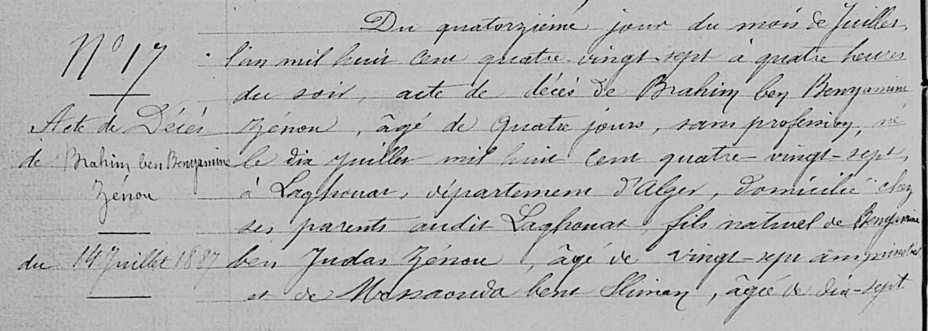 N° 17
Acte de Décés
de Brahim ben Benyamine
Zenou
du 14 Juillet 1887
Du quatorziéme jour du mois de Juillet,
l'an mil huit cent quatre-vingt-sept à quatre heures
du soir, acte de décés de Brahim ben Benyamine
Zénou, âgé de quatre jours, sans profession, né
le dix Juillet mil huit cent quatre-vingt-sept,
à Laghouat, département d'Alger, domicilié chez
ses parents audit Laghouat, fils naturel de Benyamine
ben Judas Zénou, âgé de vingt-sept ans,
et de Messaouda bent Sliman, âgée de dix-sept